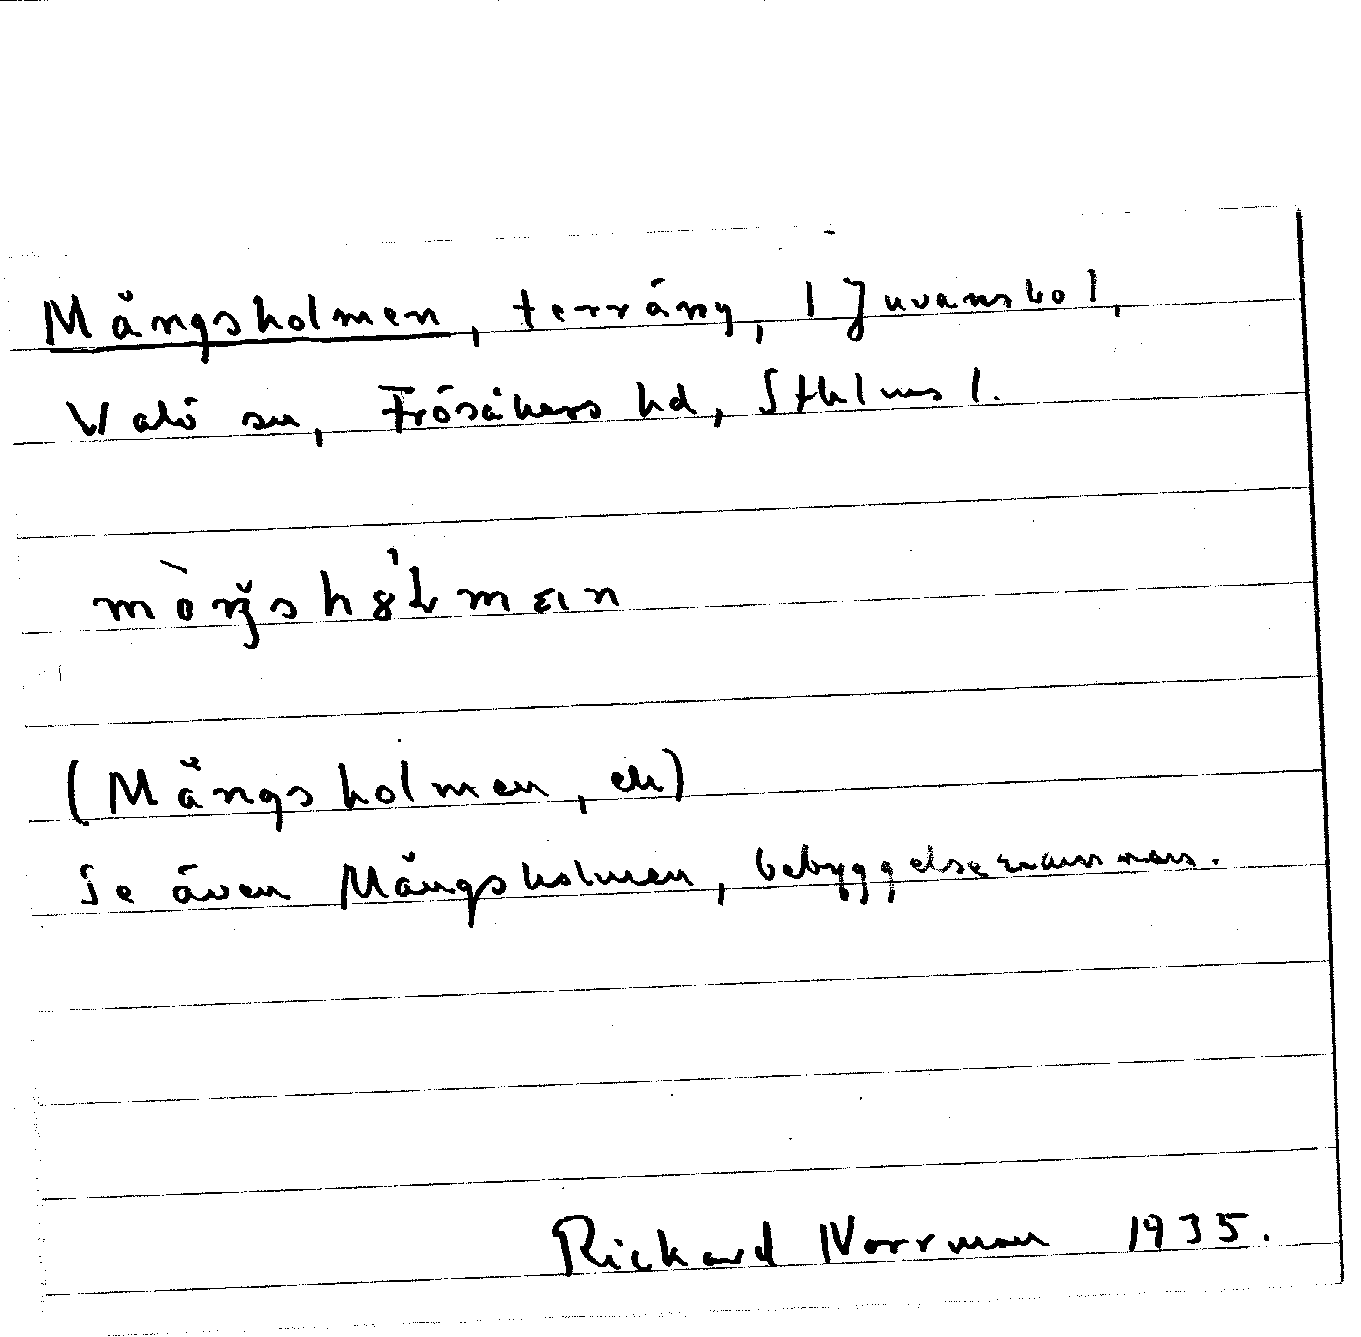 Mångsholmen, terräng, l Juvansbol,
Valö sn, Frösåkers hd, Sthlms l.
(Mångsholmen, ek)
Se även Mångsholmen, bebyggelsenamnen.
Rickard Norrman 1935.